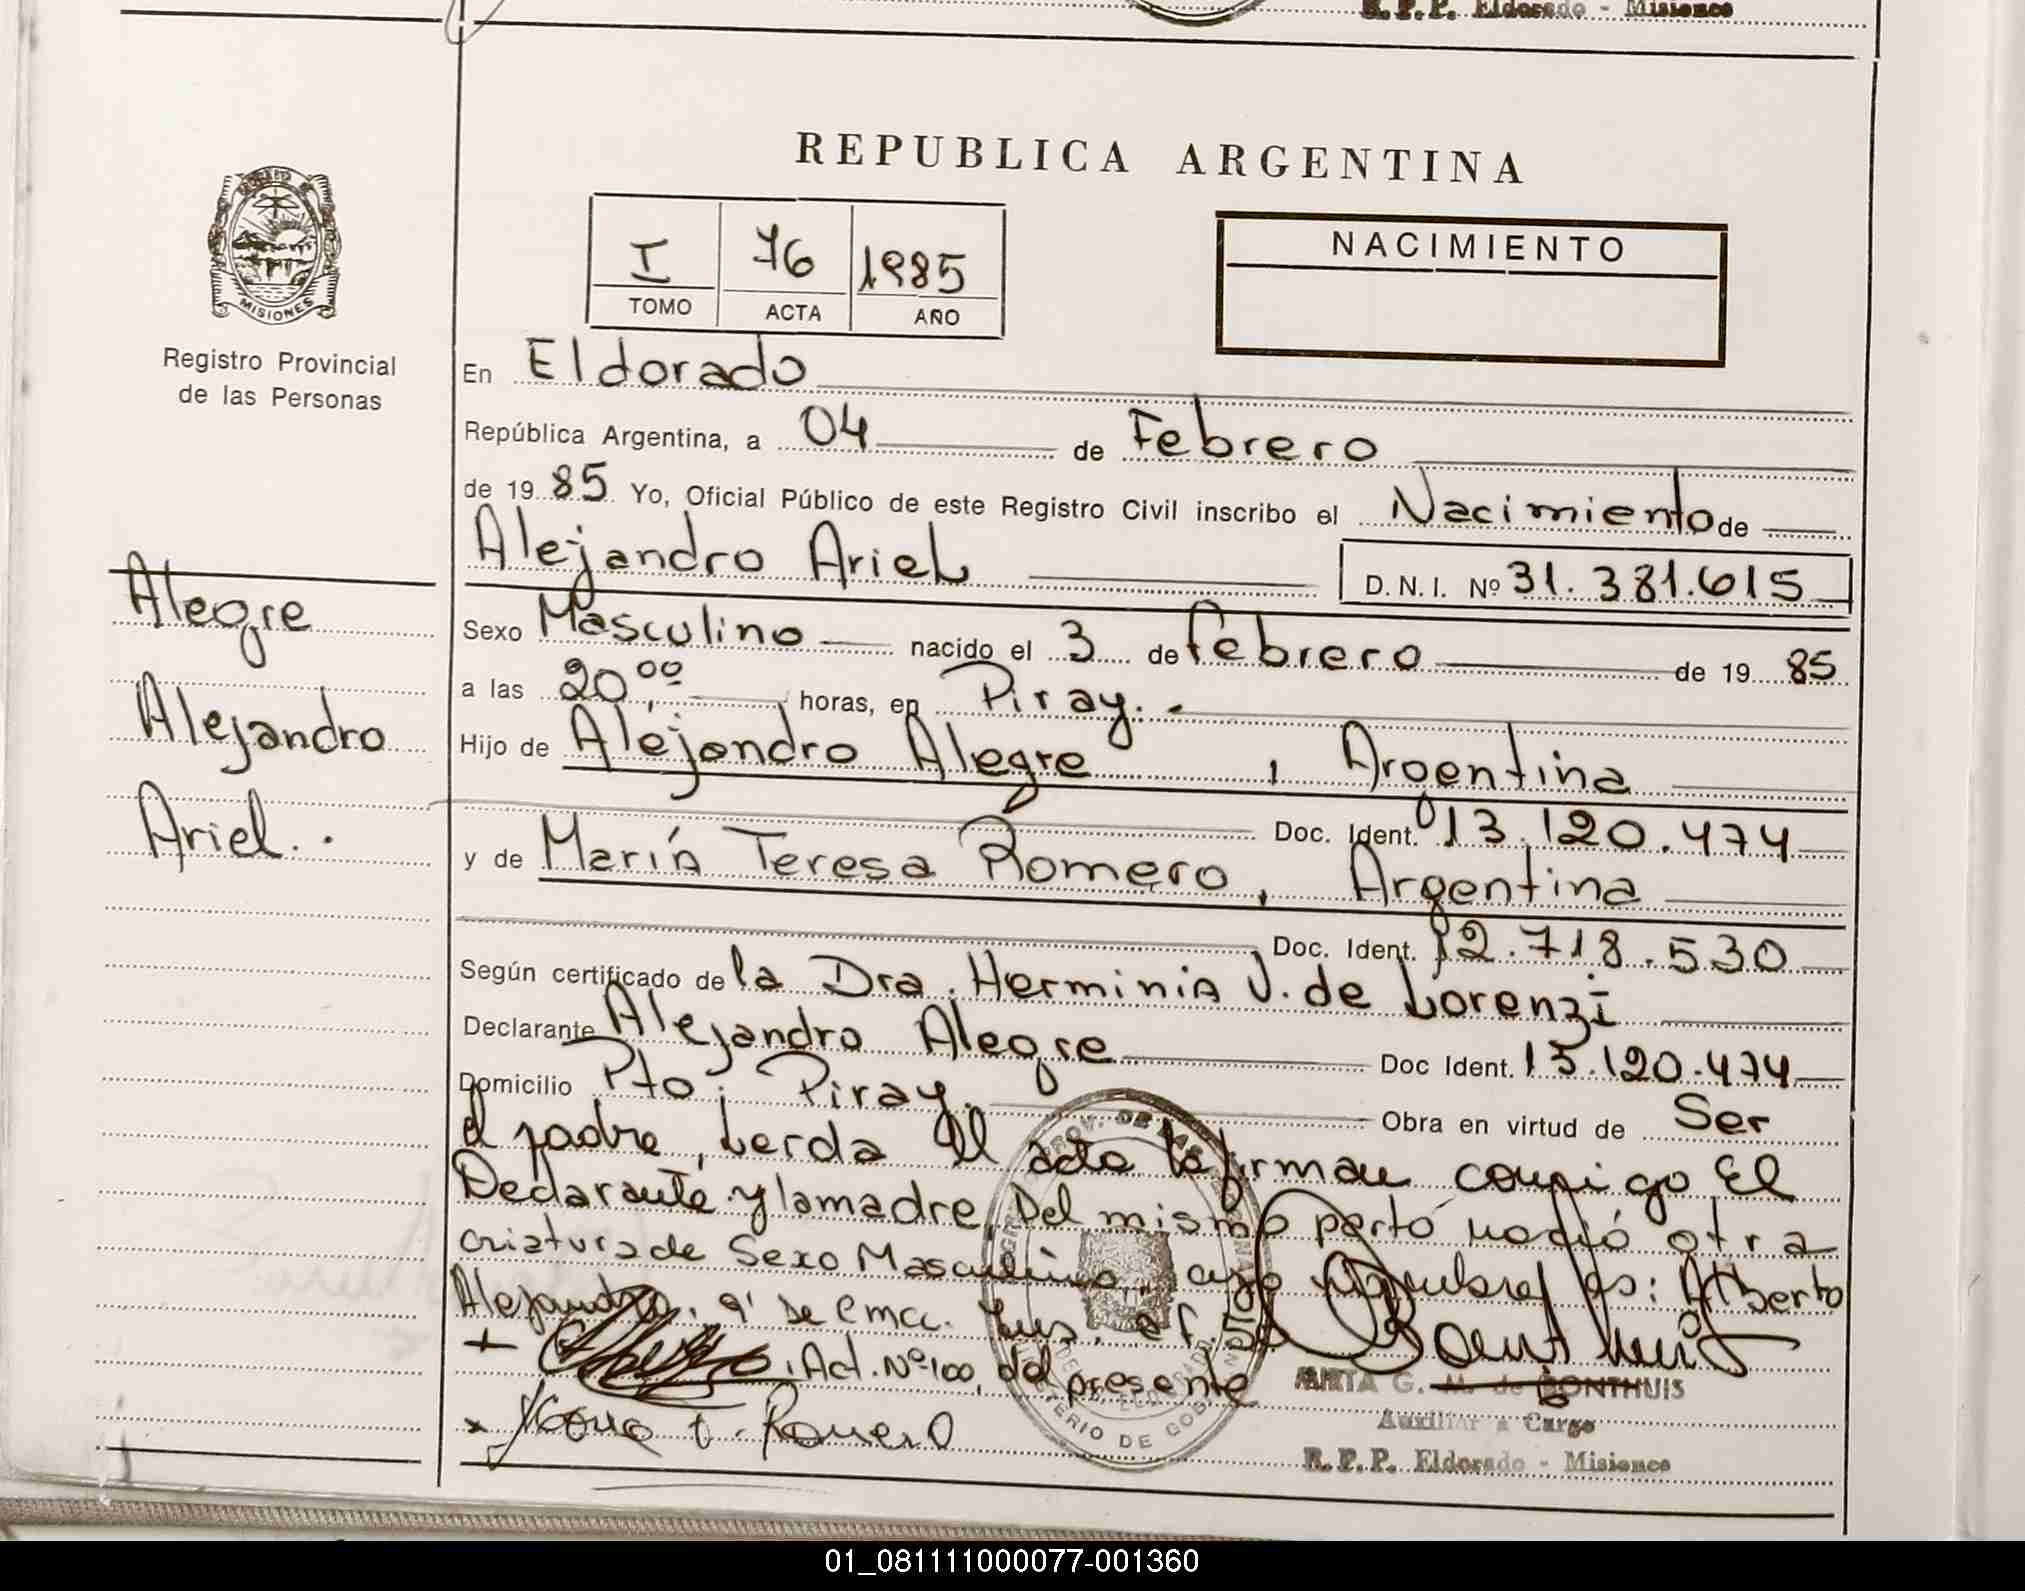 R. P. P. Eldorado - Misiones
REPUBLICA ARGENTINA
MISIONES
Registro Provincial
de las Personas
I 76 1985
TOMO ACTA AÑO
NACIMIENTO
En Eldorado
República Argentina, a 04 de Febrero
de 19 85 Yo, Oficial Público de este Registro Civil inscribo el Nacimiento de
Alejandro Ariel D.N.I. Nº 31.381.615
Sexo Masculino nacido el 3 de febrero de 19 85
a las 20,00 horas, en Piray.
Hijo de Alejandro Alegre, Argentina
Doc. Ident. 13.120.474
y de María Teresa Romero, Argentina
Doc. Ident. 12.718.530
Según certificado de la Dra. Herminia J. de Lorenzi
Declarante Alejandro Alegre Doc Ident. 13.120.474
Domicilio Pto. Piray. Obra en virtud de Ser
el padre, Leida el acta la firman conmigo El
Declarante y la madre. Del mismo parto nació otra
criatura de Sexo Masculino, cuyo nombres es: Alberto
Alejandro,
Act. Nº 100, del presente
Romero
Alegre
Alejandro
Ariel.
MIRTA G. M. de BONTHUIS
Auxiliar a Cargo
R. P. P. Eldorado - Misiones
01_081111000077-001360